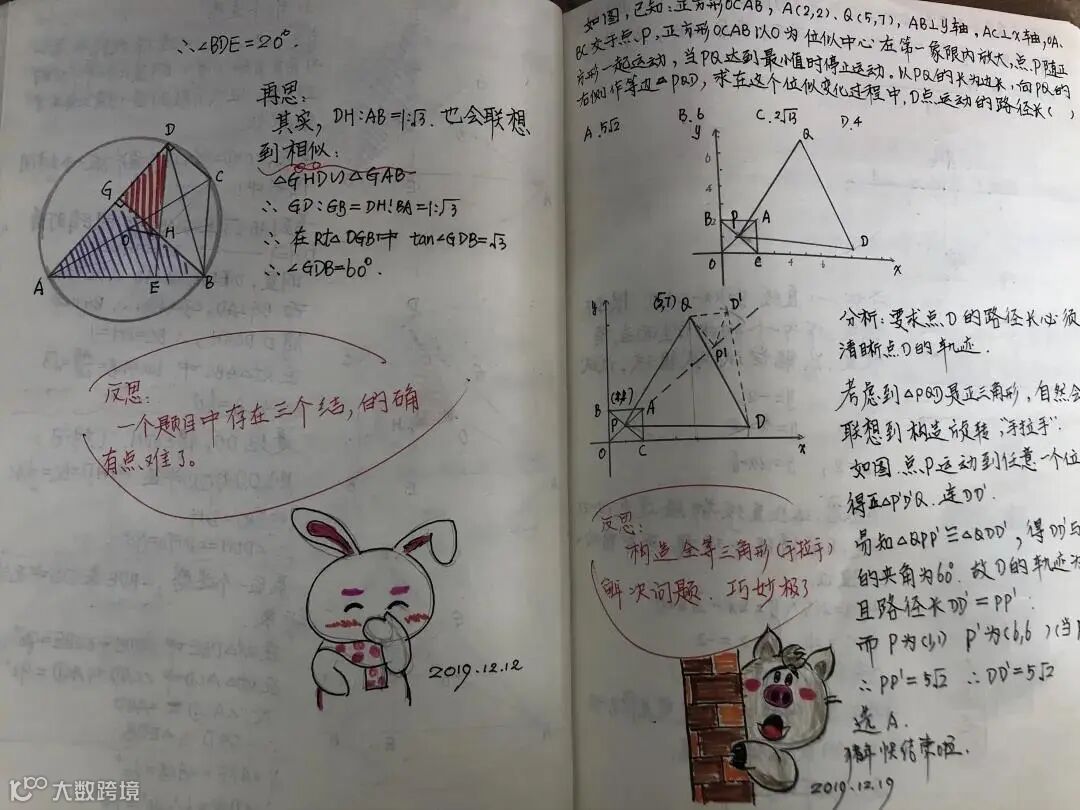 ∴∠BDE=20°.
再思:
其实, DH:AB=1:√3. 也会联想
到相似:
△GHD∽△GAB
∴ GD:GB=DH:BA=1:√3
∴ 在Rt△DGB中 tan∠GDB=√3
∴ ∠GDB=60°.
D
G
C
O
H
A
E
B
反思:
一个题目中存在三个结,的确
有点难了。
2019.12.12
如图,已知:正方形OCAB, A(2,2). Q(5,7), AB⊥y轴, AC⊥x轴, OA.
BC交于点P,正方形OCAB以O为位似中心在第一象限内放大,点P随正
方形一起运动,当PQ达到最小值时停止运动.以PQ的长为边长,向PQ的
右侧作等边△PQD,求在这个位似变化过程中,D点运动的路径长( )
A.5√2 B.6 C.2√13 D.4
y
Q
6
4
B
2
P
A
D
O
C
4
6
x
y
(5,7)
Q
D'
P'
(2,2)
B
A
P
D
O
C
x
分析:要求点D的路径长必须
清晰点D的轨迹.
考虑到△PQD是正三角形,自然会
联想到构造旋转,"手拉手".
如图.点P运动到任意一个位
得正△P'D'Q.连DD'.
易知△QPP'≌△QDD',得DD'与
的夹角为60°.故D的轨迹为
且路径长DD'=PP'.
而P为(1,1) P'为(6,6)(当P
∴ PP'=5√2 ∴DD'=5√2
选A.
猪年快结束啦.
2019.12.19
反思:
构造全等三角形(手拉手)
解决问题.巧妙极了
大数跨境